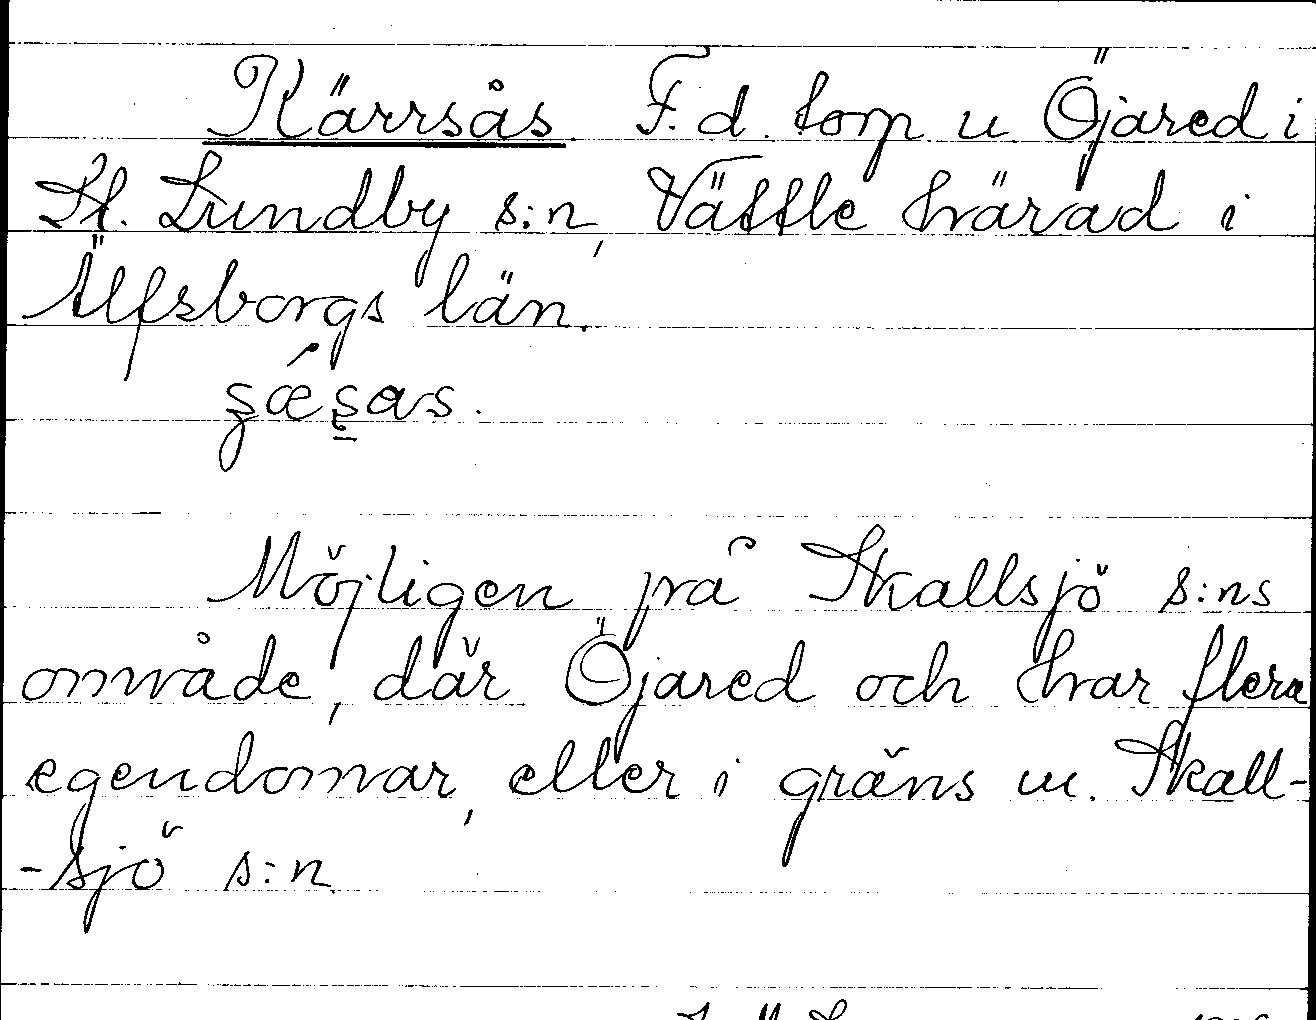 Kärrsås. F.d. torp u Öjared i
St. Lundby s:n, Vättle härad i
Älfsborgs län.
Möjligen på Skallsjö s:ns
område, där Öjared och har flera
egendomar, eller i gräns m. Skall-
-sjö s:n